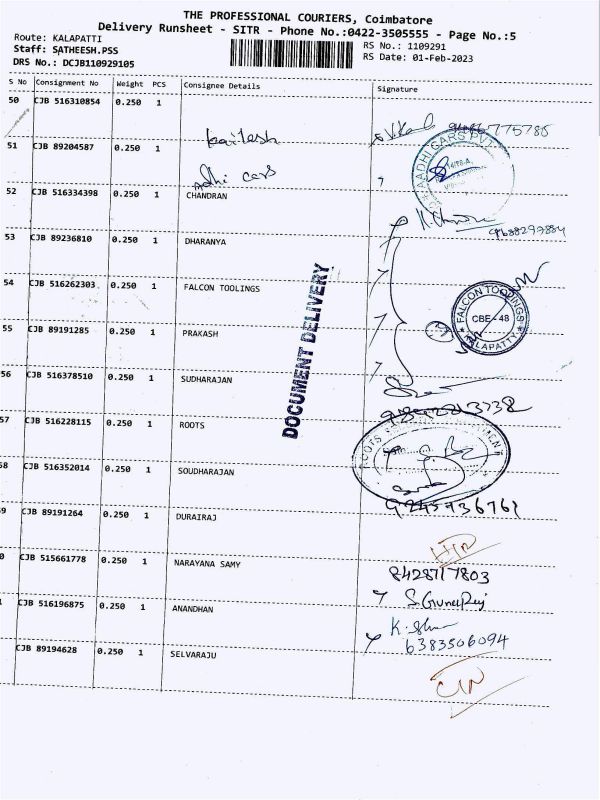 THE PROFESSIONAL COURIERS, Coimbatore
Delivery Runsheet - SITR - Phone No.:0422-3505555 - Page No.:5
Route: KALAPATTI
RS No.: 1109291
Staff: SATHEESH.PSS
RS Date: 01-Feb-2023
DRS No.: DCJB110929105
S No Consignment No Weight PCS Consignee Details Signature
50 CJB 516310854 0.250 1
kailash
51 CJB 89204587 0.250 1
Adhi cars
AADHI CARS PVT
52 CJB 516334398 0.250 1 CHANDRAN
53 CJB 89236810 0.250 1 DHARANYA
54 CJB 516262303 0.250 1 FALCON TOOLINGS
FALCON TOOLINGS
CBE-48
KALAPATTY
DOCUMENT DELIVERY
55 CJB 89191285 0.250 1 PRAKASH
56 CJB 516378510 0.250 1 SUDHARAJAN
57 CJB 516228115 0.250 1 ROOTS
58 CJB 516352014 0.250 1 SOUDHARAJAN
9 CJB 89191264 0.250 1 DURAIRAJ
0 CJB 515661778 0.250 1 NARAYANA SAMY
8428717803
CJB 516196875 0.250 1 ANANDHAN
6383506094
CJB 89194628 0.250 1 SELVARAJU